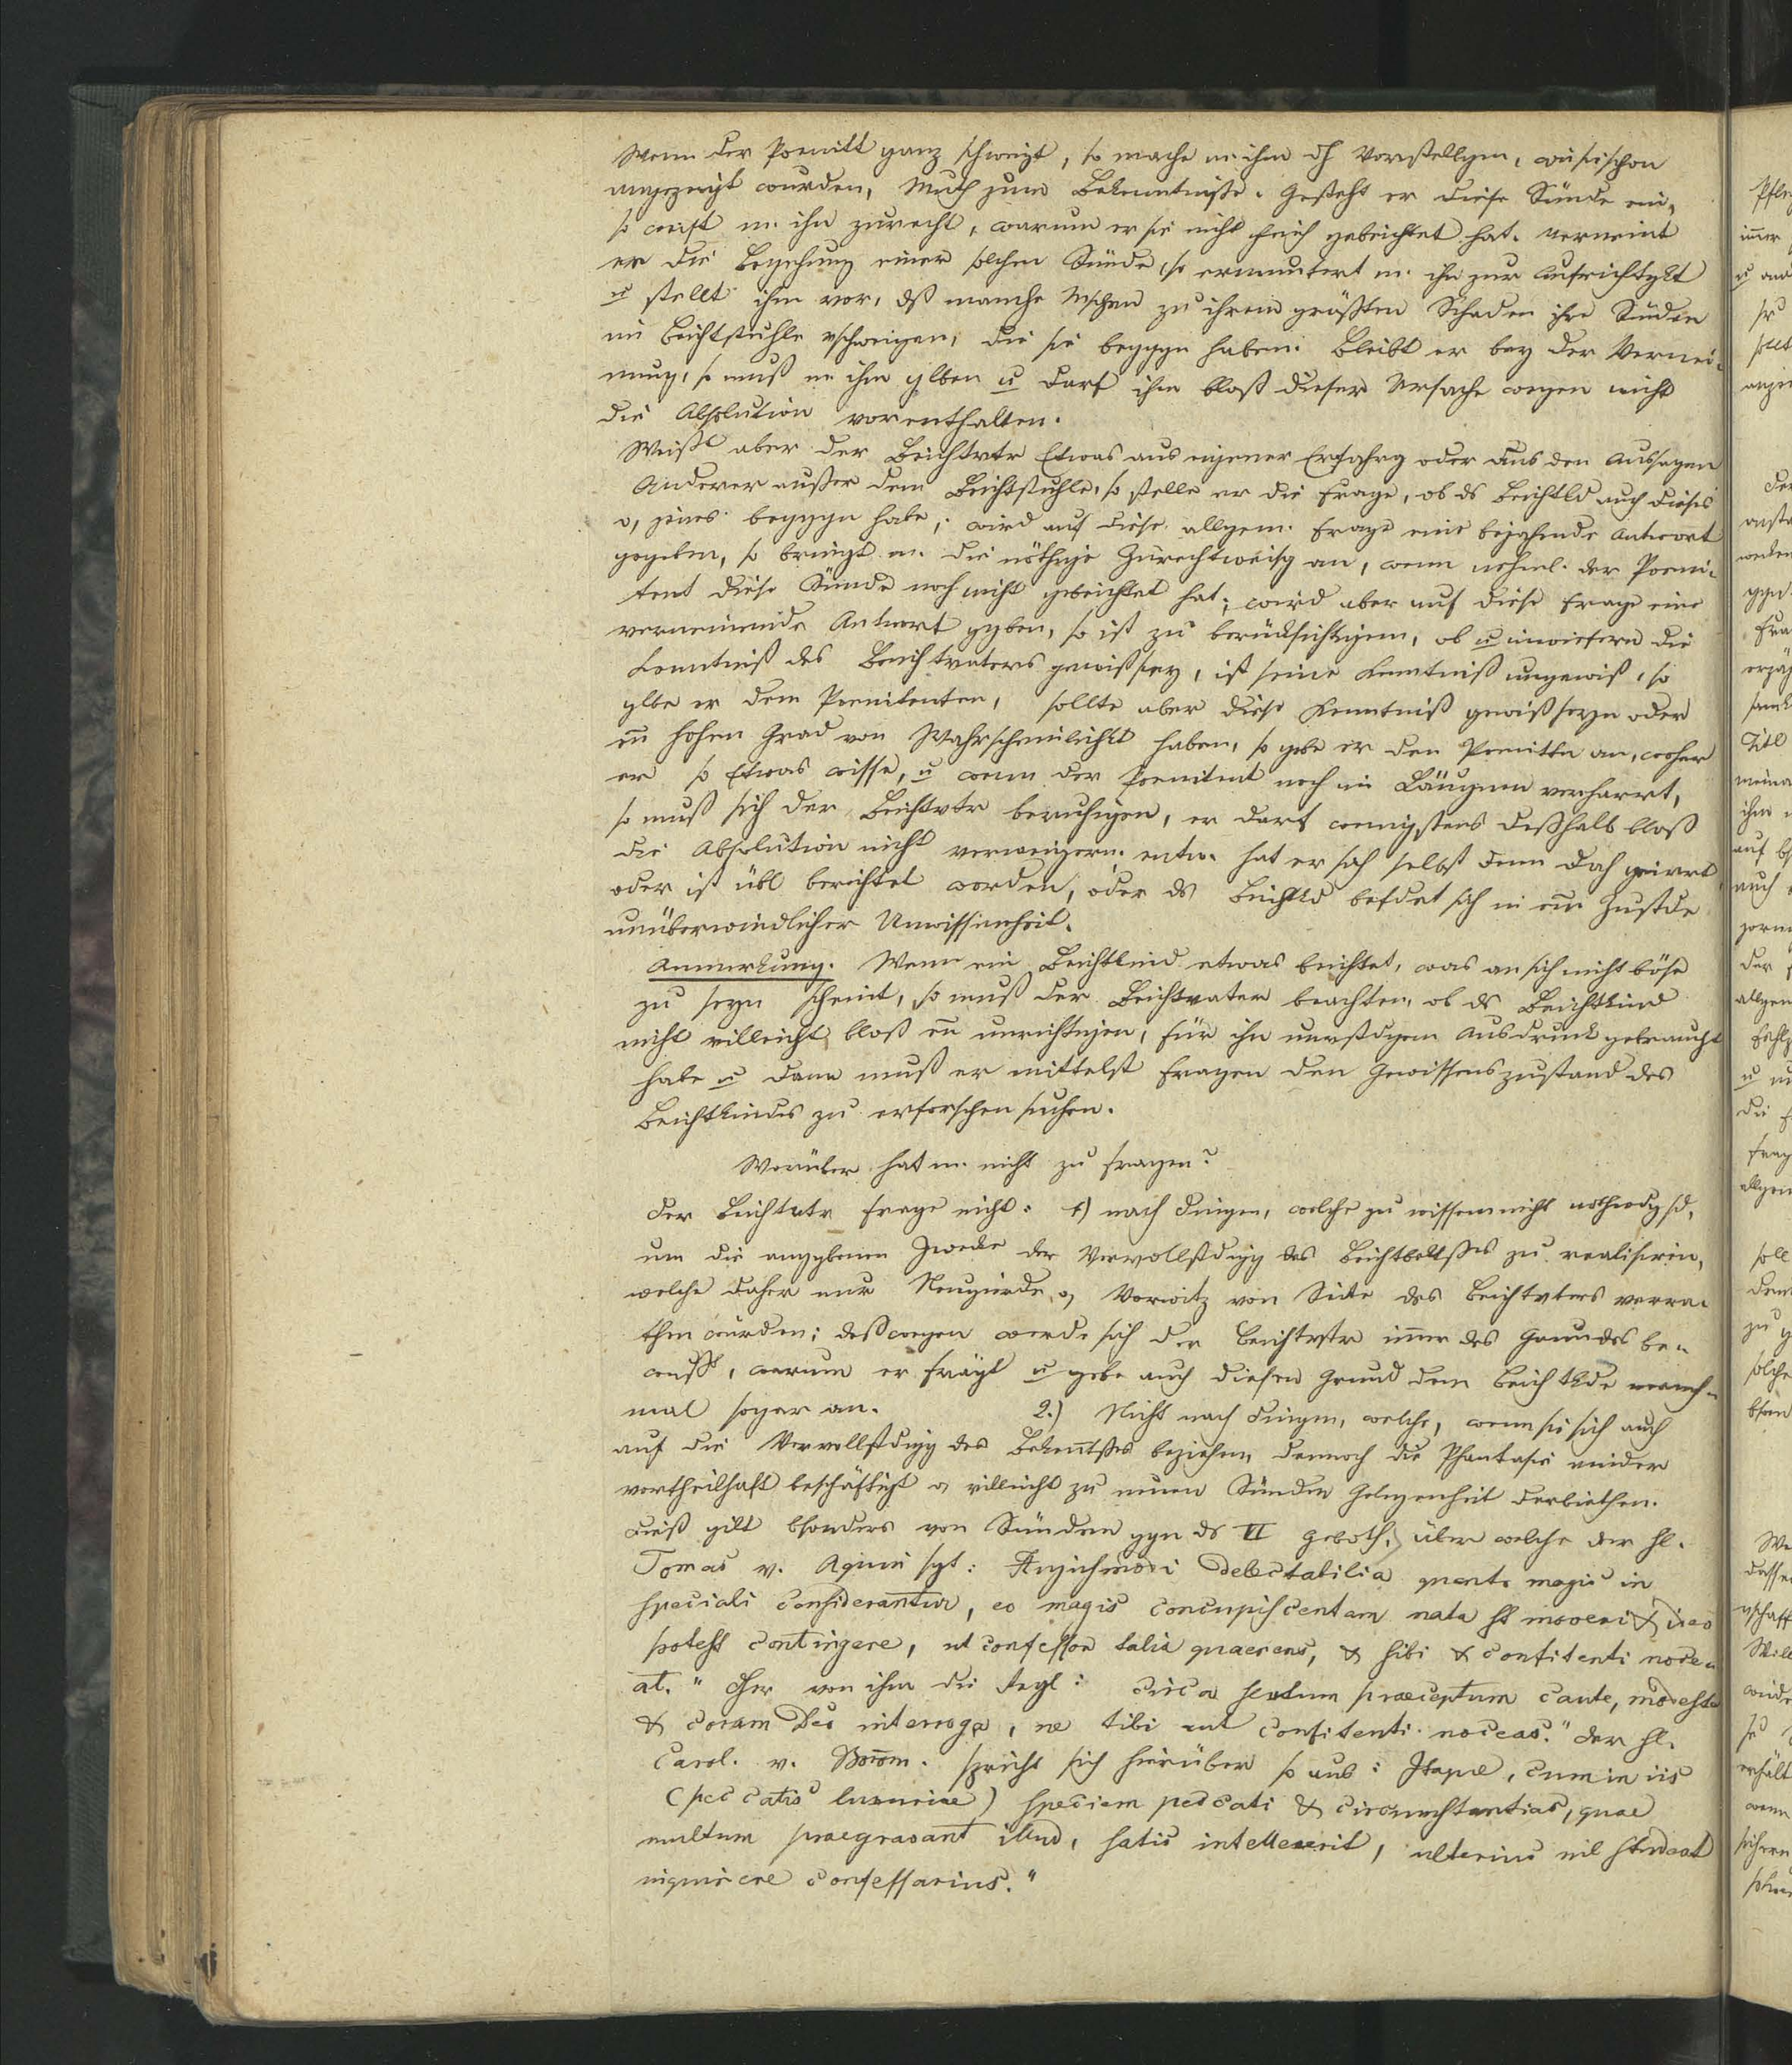 Wenn der Poenitt ganz schweigt, so mache m. ihm dh Vorstellgen, wie sie schon
angezeigt wurden, Muth zum Bekenntniße. Gesteht er diese Sünde ein,
so weist m. ihn zurecht, warum er sie nicht gebeichtet hat. Verneint
er die Begehung einer solchen Sünde, so ermuntert m. ihn zur Aufrichtgkt
u stellt ihm vor, dß manche Mschen zu ihrem größten Schaden ihre Sünden
im Beichtstuhle vschweigen, die sie beggn haben. Bleibt er bey der Vernei-
nung, so muß m. ihm glben u darf ihm bloß dieser Ursache wegen nicht
die Absolution vorenthalten.
Weißt aber der Beichtvtr Etwas aus eigener Erfahrg oder aus den Aussagen
Anderer außer dem Beichtstuhle, so stelle er die Frage, ob ds Beichtkd auch dieses
o, jenes beggn habe; wird auf diese allgem. Frage eine bejahende Antwort
gegeben, so bringt m. die nöthige Zurechtweisg an, wenn nehml. der Poeni-
tent diese Sünde noch nicht gebeichtet hat; wird aber auf diese Frage eine
verneinende Antwort ggben, so ist zu berücksichtigen, ob u inwiefern die
Kenntniß des Beichtvaters gewiß sey, ist seine Kenntniß ungewiß, so
glbe er dem Poenitenten, sollte aber diese Kenntniß gewiß seyn oder
en hohen Grad von Wahrscheinlichkt haben, so gebe er den Poenittn an, woher
er so Etwas wisse, u wenn der Poenitent noch im Läugnen verharrt,
so muß sich der Beichtvtr beruhigen, er darf wenigstens deßhalb bloß
die Absolution nicht verweigern. entw. hat er sich selbst geirrt
oder ist übl berichtet worden, oder ds Beichtkd befdet sich in em Zustde
unüberwindlicher Unwissenheit.
Anmerkung. Wenn ein Beichtkind etwas beichtet, was an sich nicht böse
zu seyn scheint, so muß der Beichtvater beachten, ob ds Beichtkind
nicht villeicht bloß en unrichtigen, für ihn unvstdgen Ausdruck gebraucht
habe u dann muß er mittelst Fragen den Gewissenszustand des
Beichtkindes zu erforschen suchen.
Worüber hat m. nicht zu fragen?
Der Beichtvtr frage nicht: 1) nach Dingen, welche zu wissen nicht nothwdg sd,
um die anggbenen Zwecke der Vervollstdgg des Beichtbektßes zu realisiren,
welche daher nur Neugierde o, Vorwitz von Seite des Beichtvters verra-
then würden; deßwegen werde sich der Beichtvtr immer des Grundes be-
wußt, warum er frägt u gebe auch diesen Grund dem Beichtkde manch-
mal sogar an. 2.) Nicht nach Dingen, welche, wenn sie sich auch
auf die Vervollstdgg des Bekenntßes beziehen, dennoch die Phantasie minder
vortheilhaft beschäftigt o, villeicht zu neuen Sünden Gelegenheit darbiethen.
Dieß gilt bsonders von Sünden ggn ds VI Geboth, über welche der hl.
Tomas v. Aquin sgt: delectabilia quanto magis in
speciali considerantur, eo magis concupiscentiam nata st moveri & ideo
potest contingere, ut confessor talia quaerens, & sibi & confitenti noce-
at." Hher von ihm die Regl: Circa sextum praeceptum caute, modeste
& coram Deo interroga, ne tibi aut confitenti noceas." Der hl.
Carol. v. Borom. spricht sich hierüber so aus: Itaque, cum in iis
(peccatis luxuriae) speciem peccati & circumstantias, quae
multum praegravant illud, satis intellexerit, ulterius nil studeat
inquirere confessarius."